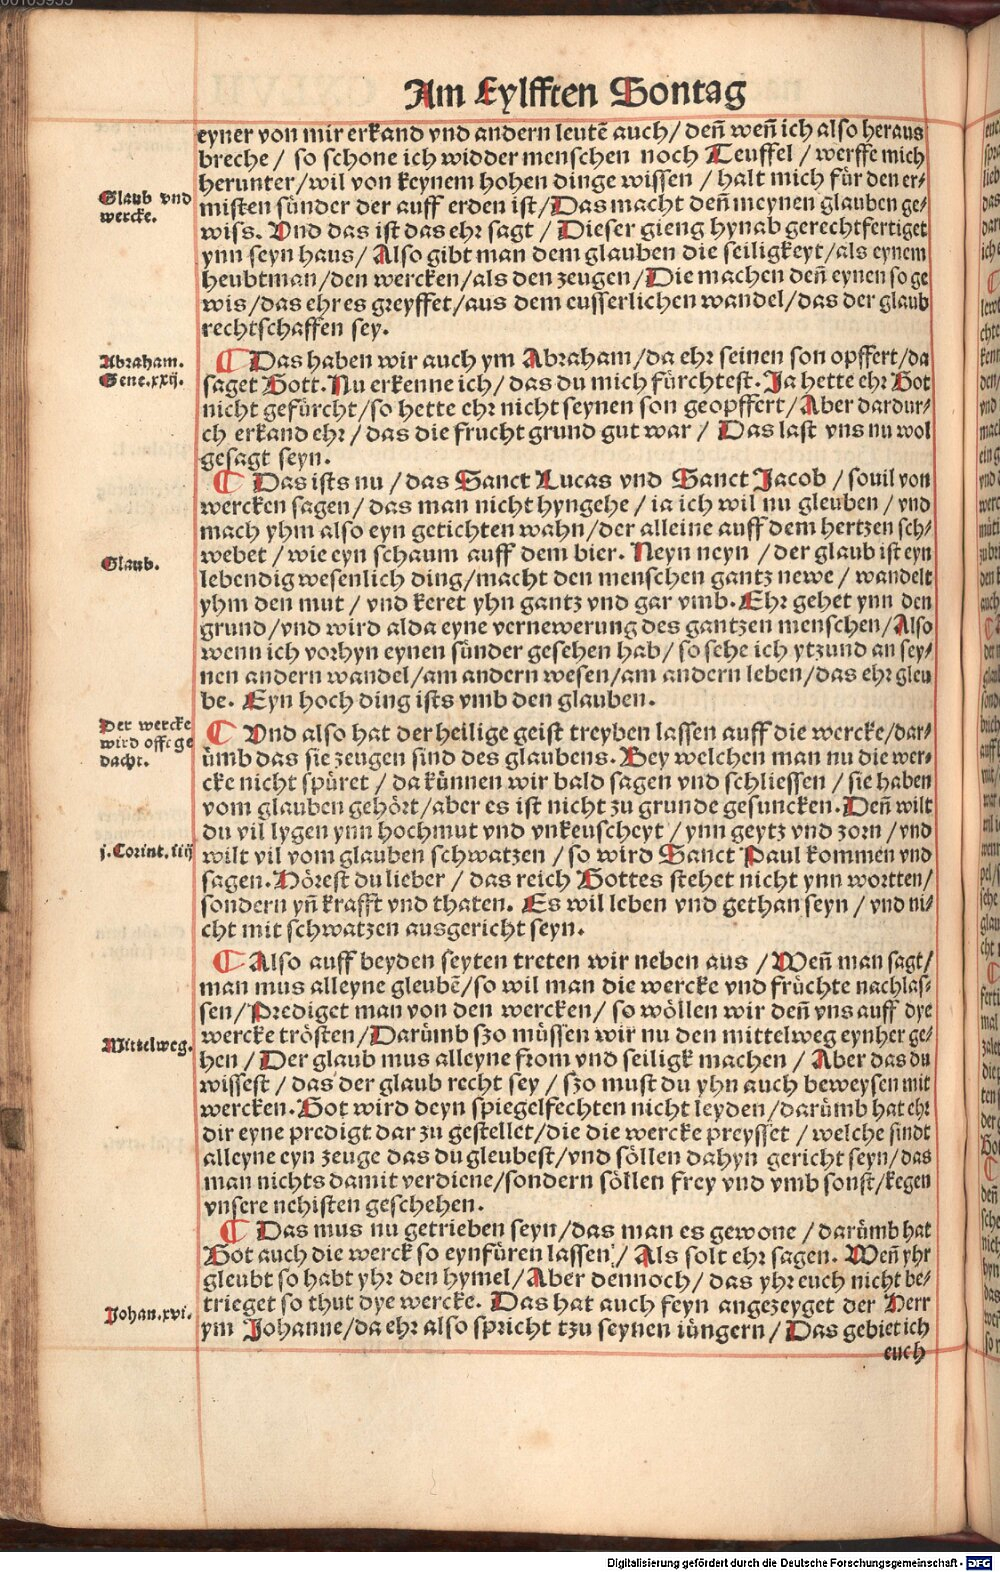 Am Eylfften Sontag
eyner von mir erkand vnd andern leutē auch/ deñ weñ ich also heraus
breche / so schone ich widder menschen noch Teuffel / werffe mich
herunter/wil von keynem hohen dinge wissen / halt mich für den er⸗
Glaub vnd
wercke.
misten sünder der auff erden ist/Das macht deñ meynen glauben ge⸗
wiss. Vnd das ist das ehr sagt / Dieser gieng hynab gerechtfertiget
ynn seyn haus/ Also gibt man dem glauben die seiligkeyt/als eynem
heubtman/den wercken/als den zeugen/Die machen deñ eynen so ge
wis/das ehr es greyffet/aus dem eusserlichen wandel/das der glaub
rechtschaffen sey.
Abraham.
Gene.xxij.
Das haben wir auch ym Abraham/da ehr seinen son opffert/da
saget Gott. Nu erkenne ich/das du mich fürchtest. Ja hette ehr Got
nicht gefürcht/so hette ehr nicht seynen son geopffert/Aber dardur⸗
ch erkand ehr/das die frucht grund gut war / Das last vns nu wol
gesagt seyn.
Das ists nu/das Sanct Lucas vnd Sanct Jacob/souil von
wercken sagen/das man nicht hyngehe/ ia ich wil nu gleuben/vnd
mach yhm also eyn getichten wahn/der alleine auff dem hertzen sch⸗
Glaub.
webet/wie eyn schaum auff dem bier. Neyn neyn /der glaub ist eyn
lebendig wesenlich ding/macht den menschen gantz newe / wandelt
yhm den mut / vnd keret yhn gantz vnd gar vmb. Ehr gehet ynn den
grund/vnd wird alda eyne vernewerung des gantzen menschen/Also
wenn ich vorhyn eynen sünder gesehen hab/ so sehe ich ytzund an sey⸗
nen andern wandel/am andern wesen/am andern leben/das ehr gleu
be. Eyn hoch ding ists vmb den glauben.
Der wercke
wird offt ge
dacht.
Vnd also hat der heilige geist treyben lassen auff die wercke/dar⸗
ümb das sie zeugen sind des glaubens. Bey welchen man nu die wer⸗
cke nicht spüret / da künnen wir bald sagen vnd schliessen / sie haben
vom glauben gehört/aber es ist nicht zu grunde gesuncken. Deñ wilt
du vil lygen ynn hochmut vnd vnkeuscheyt / ynn geytz vnd zorn / vnd
j.Corint.iiij
wilt vil vom glauben schwatzen / so wird Sanct Paul kommen vnd
sagen. Hörest du lieber / das reich Gottes stehet nicht ynn wortten/
sondern yñ krafft vnd thaten. Es wil leben vnd gethan seyn / vnd ni⸗
cht mit schwatzen ausgericht seyn.
Also auff beyden seyten treten wir neben aus / Weñ man sagt/
man mus alleyne gleubē/so wil man die wercke vnd früchte nachlas⸗
sen/Prediget man von den wercken/ so wöllen wir deñ vns auff dye
Mittelweg.
wercke trösten/Darümb szo müssen wir nu den mittelweg eynher ge⸗
hen / Der glaub mus alleyne from vnd seiligk machen / Aber das du
wissest / das der glaub recht sey / szo must du yhn auch beweysen mit
wercken. Got wird deyn spiegelfechten nicht leyden/darümb hat ehr
dir eyne predigt dar zu gestellet/die die wercke preysset / welche sindt
alleyne eyn zeuge das du gleubest/vnd söllen dahyn gericht seyn/das
man nichts damit verdiene/sondern söllen frey vnd vmb sonst/kegen
vnsere nehisten geschehen.
Das mus nu getrieben seyn/das man es gewone / darümb hat
Got auch die werck so eynfüren lassen / Als solt ehr sagen. Weñ yhr
gleubt so habt yhr den hymel/Aber dennoch/das yhr euch nicht be⸗
Johan.xvi.
trieget so thut dye wercke. Das hat auch feyn angezeyget der Herr
ym Johanne/da ehr also spricht tzu seynen iüngern/Das gebiet ich
euch
Digitalisierung gefördert durch die Deutsche Forschungsgemeinschaft - DFG